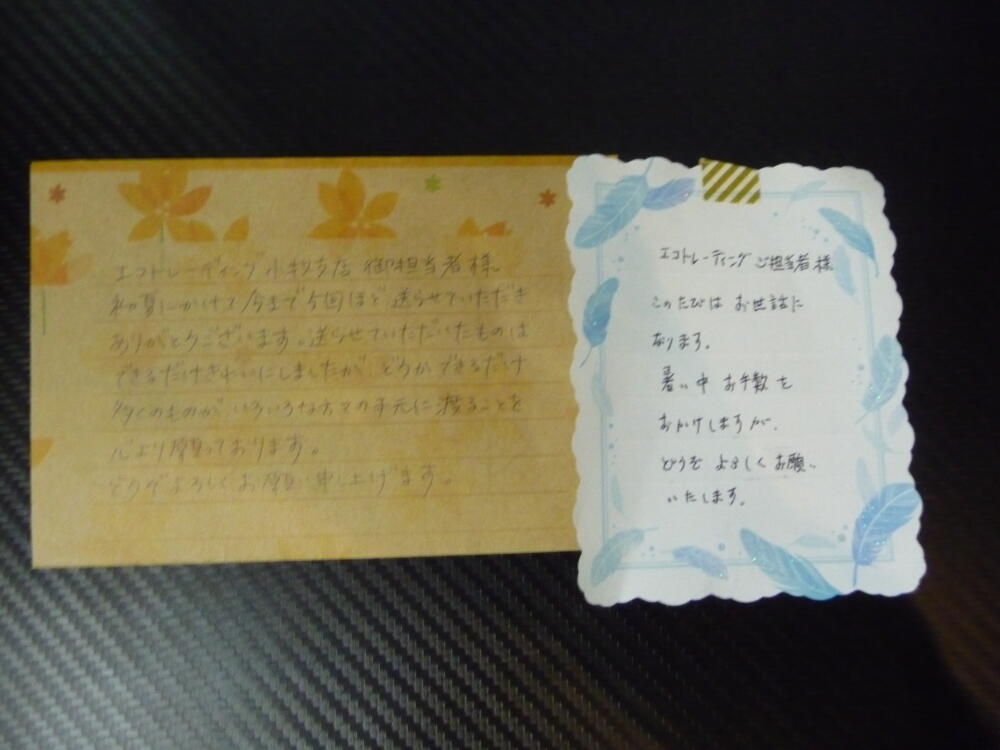 エコトレーディング 小牧支店 御担当者様
私の夏にかけて今まで5回ほど送らせていただき
ありがとうございます。送らせていただいたものは
できるだけきれいにしましたが、どうかできるだけ
多くのものが、いろいろな方々の手元に渡ることを
心より願っております。
どうぞよろしくお願い申し上げます。
エコトレーディング ご担当者様
このたびは お世話に
なります。
暑い中 お手数を
おかけしますが、
どうぞ よろしくお願い
いたします。